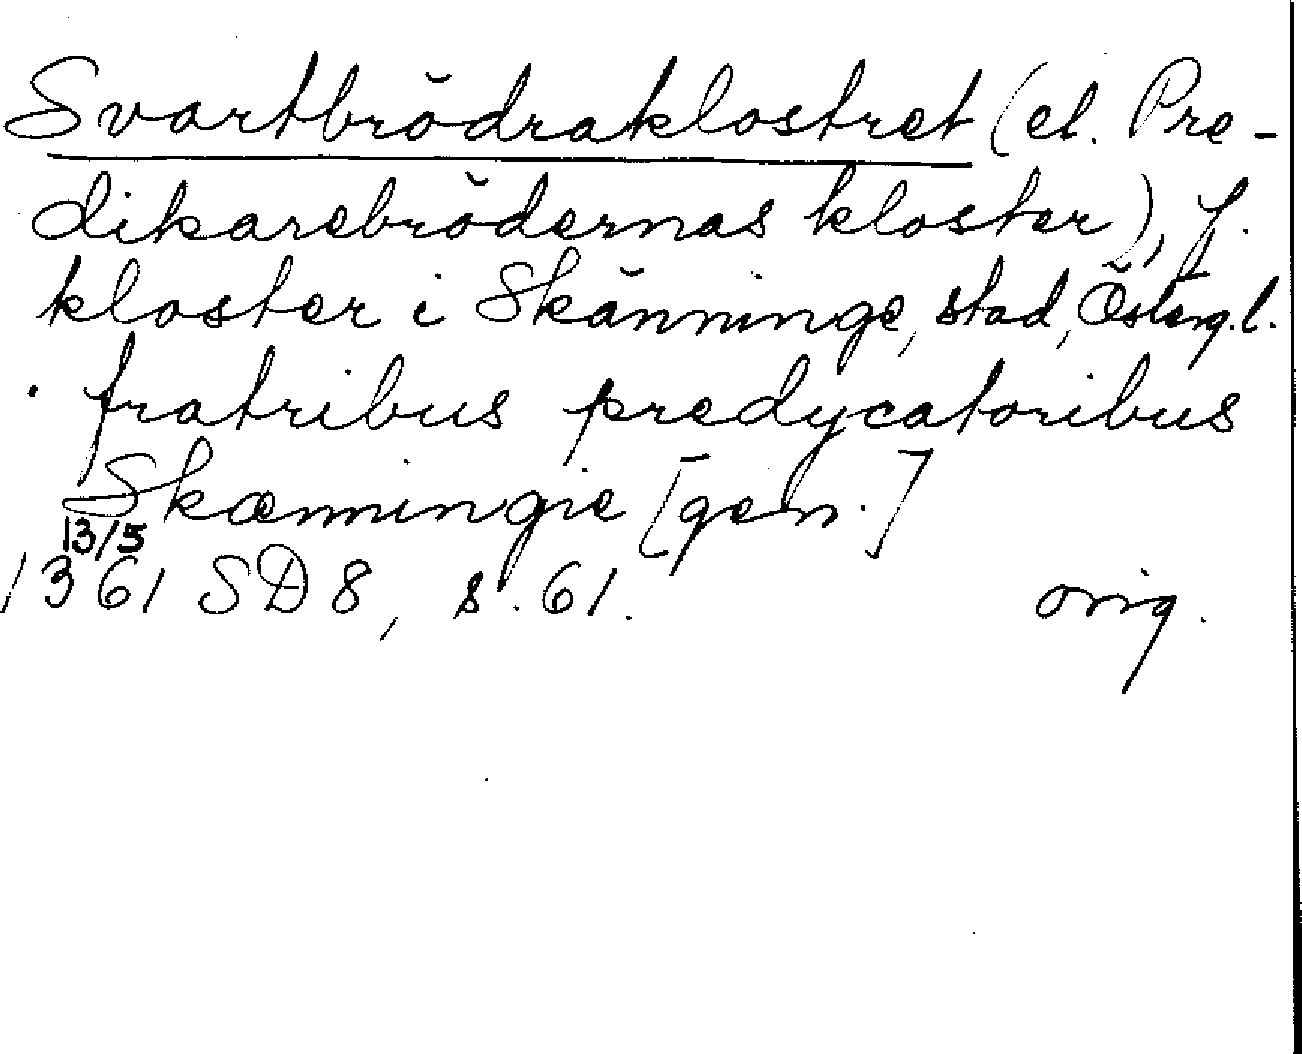 Svartbrödraklostret (el. Pre-
dikarebrödernas kloster), f.
kloster i Skänninge, stad, Österg.l.
fratribus predycatoribus
Skæmmingie [gen.]
13/5
1361 SD 8, s. 61. orig.